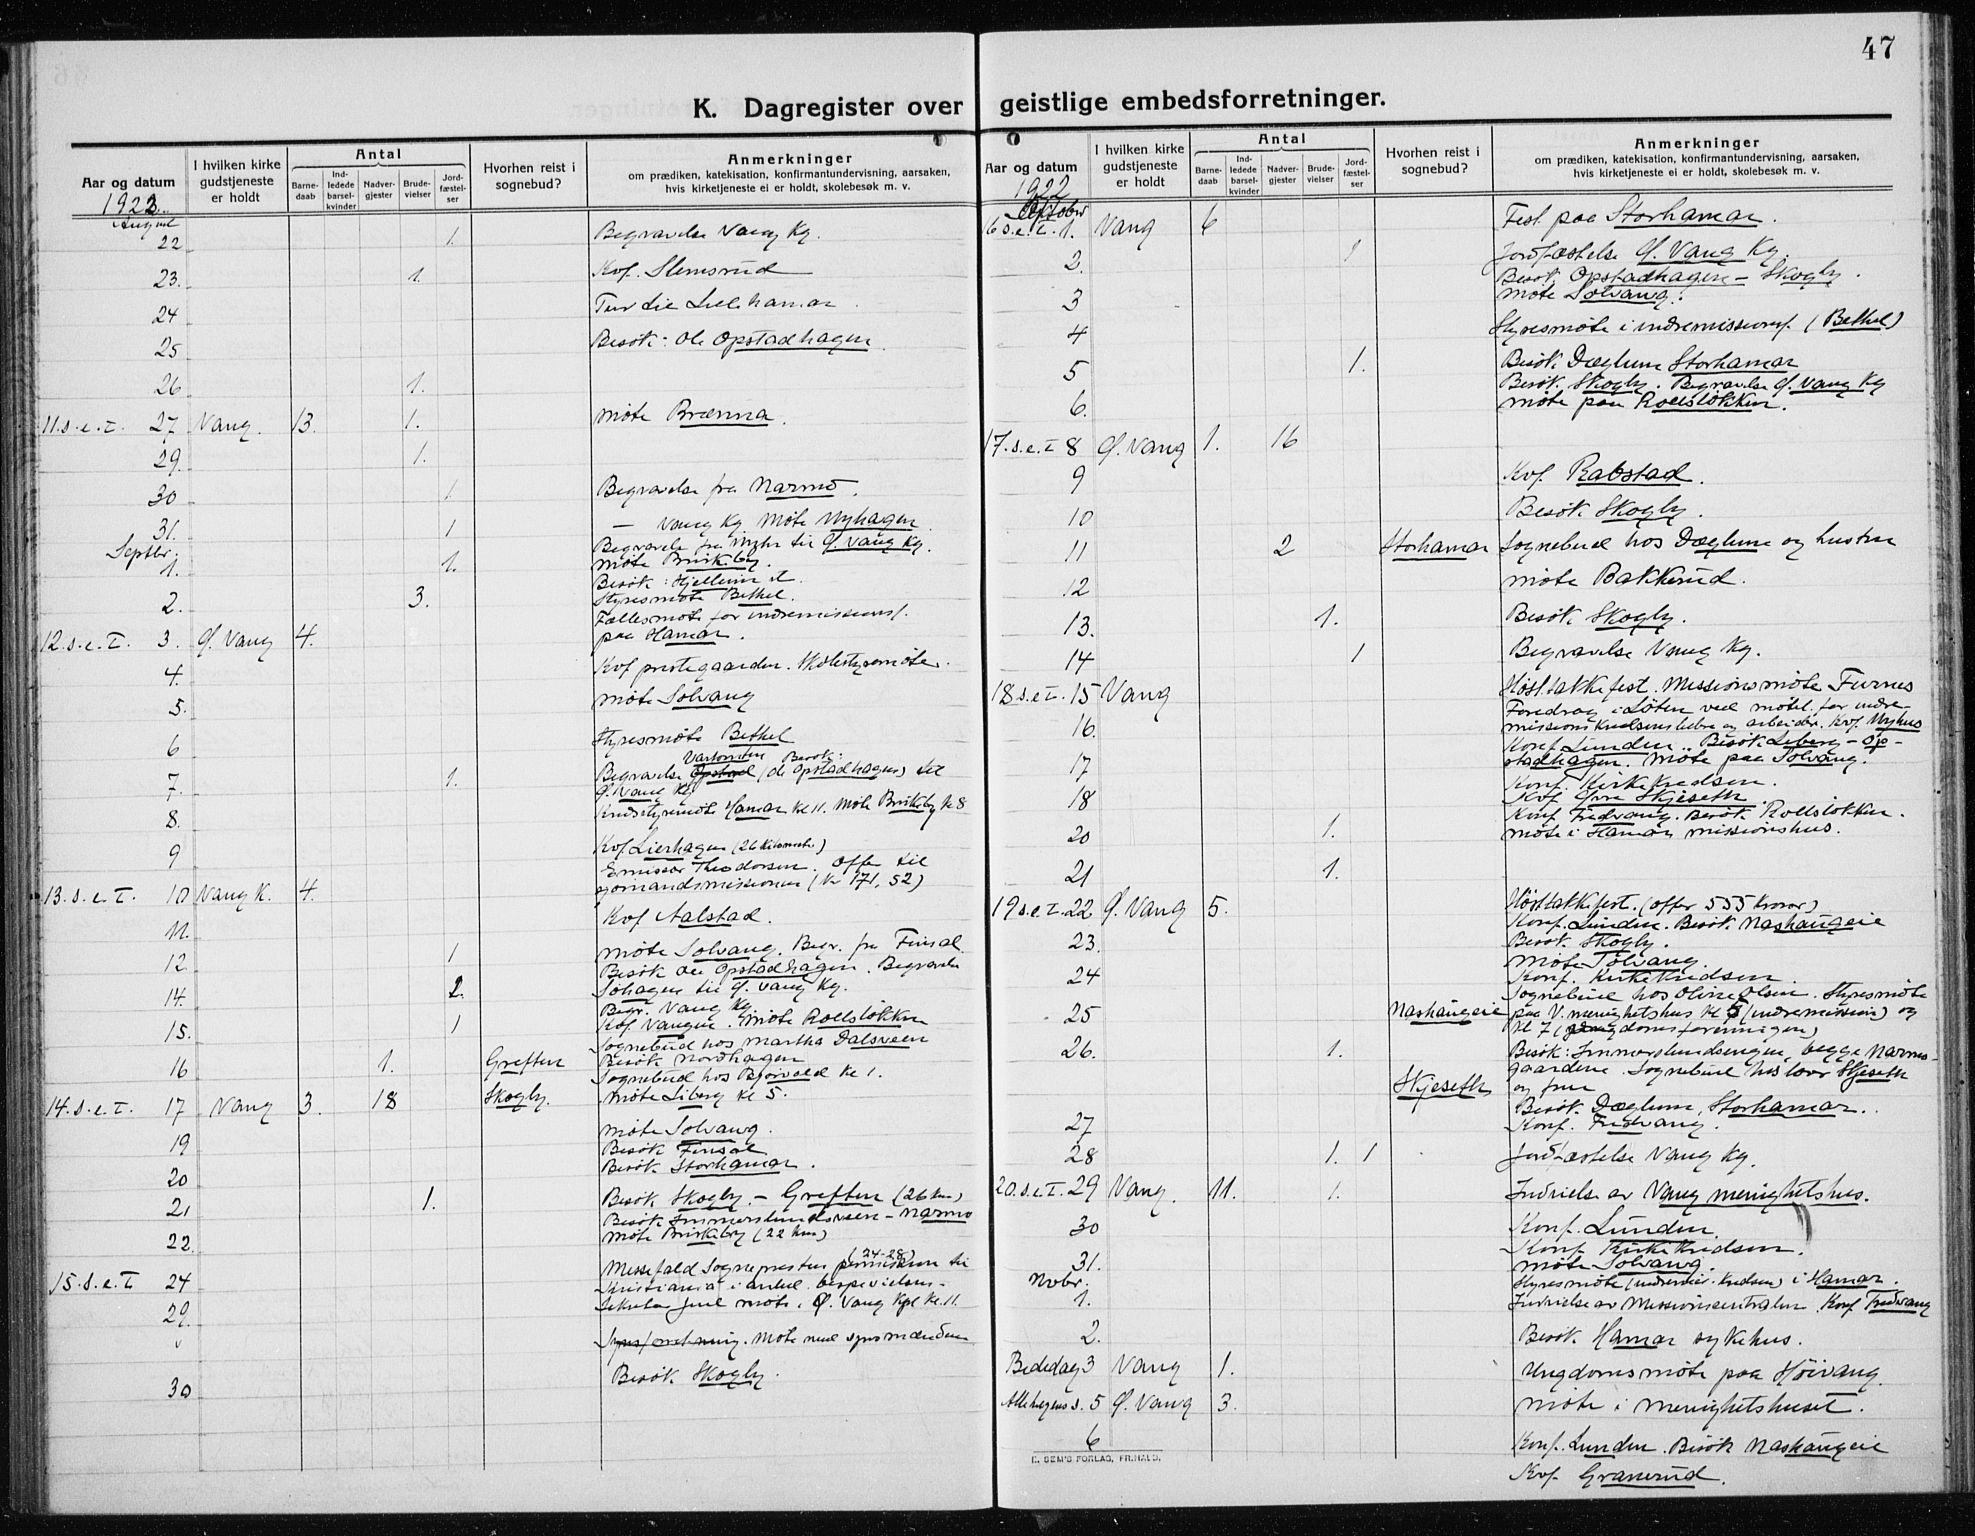 47
K. Dagregister over geistlige embedsforretninger.
Aar og datum
I hvilken kirke gudstjeneste er holdt
Antal
Barne-daab
Ind-ledede barsel-kvinder
Nadver-gjester
Brude-vielser
Jord-fæstel-ser
Hvorhen reist i sognebud?
Anmerkninger
om prædiken, katekisation, konfirmantundervisning, aarsaken, hvis kirketjeneste ei er holdt, skolebesøk m. v.
1922.
August
22 1. Begravelse Vang Kg.
23. 1. Kof. Slemsrud
24 Tur til Lillehamar.
25 Besøk: Ole Opstadhagen
26 1.
11.s.e.T. 27 Vang. 13. 1. Møte Brænna.
29. 1.
30 1 Begravelse fra Narmo.
31. 1 — Vang Kg. Møte Nyhagen.
Septbr. Begravelse fra til Ø. Vang Kg.
1. 1. Møte Briskeby.
Besøk: Hjellum st.
2. 3. Styresmøte Bethel.
Fællesmøte for indremissionsf.
12.s.e.T. 3. Ø. Vang 4. paa Hamar.
4. Kof prestegaarden. Skolestyremøte.
5. Møte Solvang
6 Styresmøte Bethel
Besøk:
7. 1. Begravelse (Ole Opstadhagen) til
Ø. Vang Kg
8. Hamar kl 11. Møte Briskeby kl 8
9 Kof Lierhagen (26 kilometer)
Emissær Theodorsen. Offer til
13.s.e.T. 10 Vang K. 4. sjømandsmissionen (kr 171,52)
11. Kof Aalstad.
12 1 Møte Solvang. Begr. fra Finsal
Besøk Ole Opstadhagen. Begravelse
14 2. Solhagen til Ø. Vang Kg.
Begr. Vang Kg
15. 1 Kof Vangen. Møte Roelsløkken
Sognebud hos Martha Dalsveen
16 1. Greften Besøk Nordhagen
Sognebud hos Bjørvold kl 1.
14.s.e.T. 17 Vang 3. 18 Skogby. Møte Liberg kl 5.
19 Møte Solvang.
Besøk Finsal
20 Besøk Storhamar.
21 1. Besøk Skogby – Greften (26 km)
Besøk Immerslundsveen – Narmo
22. Møte Briskeby (22 km)
(24-28)
15.s.e.T 24 Messefald Sognepresten permission til
Kristiania i anled. bispevielsen.
29. Juul møte i Ø. Vang Kpl kl. 11.
Synsforretning. Møte med synsmændene
30 Besøk Skogby.
Aar og datum
I hvilken kirke gudstjeneste er holdt
Antal
Barne-daab
Ind-ledede barsel-kvinder
Nadver-gjester
Brude-vielser
Jord-fæstel-ser
Hvorhen reist i sognebud?
Anmerkninger
om prædiken, katekisation, konfirmantundervisning, aarsaken, hvis kirketjeneste ei er holdt, skolebesøk m. v.
1922
Oktober
16 s.e.T. 1. Vang 6 Fest paa Storhamar.
2. 1 Jordfæstelse Ø. Vang Kg.
Besøk Opstadhagen – Skogby.
3 Møte Solvang.
4 Styresmøte i indremissionsf. (Bethel)
5 1. Besøk Dæglum Storhamar
Besøk Skogby. Begravelse Ø. Vang Kg
6. Møte paa Roelsløkken.
17.s.e.T 8 Ø. Vang 1. 16
9 Kof. Rabstad.
10 Besøk Skogby.
11 2 Storhamar Sognebud hos Dæglum og hustru
12 Møte Bakkerud.
13. 1. Besøk Skogby.
14 1 Begravelse Vang Kg.
18 s.e.T. 15 Vang Høsttakkefest. Missionsmøte Furnes
Foredrag i Løten ved møtet for indre-
16. missions Kredsens ledere og arbeidere. Kof. Nyhus
Konf. Lunden. Besøk Liberg – Op-
17 stadhagen. Møte paa Solvang.
Konf. Kirkekredsen.
18 Kof. Øvre Skjeseth
Konf. Fredvang. Besøk Roelsløkken.
20 1. Møte i Hamar missionshus.
21 1.
19 s.e.T. 22 Ø. Vang 5. Høsttakkefest. (offer 555 kroner)
Konf. Lunden. Besøk Nashaugeie
23. Besøk Skogby.
Møte Solvang.
24 Konf. Kirkekredsen
Sognebud hos Olsen. Styresmøte
25 Nashaugeie paa V. menighetshus kl 5 (indremission) og
kl 7 (ungdomsforeningen)
26. 1. Besøk: Immerslundsengen, begge Narmo-
gaardene. Sognebud hos Skjeseth
Skjeseth og frue
Besøk. Dæglum, Storhamar.
27 Konf. Fredvang.
28 1. 1 Jordfæstelse Vang Kg.
20.s.e.T. 29 Vang. 11. 1. Indvielse av Vang menighetshus.
30 Konf. Lunden.
Konf Kirkekredsen.
31. Møte Solvang.
Novbr. Styresmøte (indremis. Kredsen) i Hamar.
1. Indvielse av Missionscentralen. Konf Fredvang
2. Besøk Hamar sykehus.
Bededag 3 Vang 1. Ungdomsmøte paa Høivang.
Allehelgens s. 5 Ø. Vang 3. Møte i menighetshuset.
6 Konf. Lunden. Besøk Nashaugeie
Kof Granerud.
E. SEM'S FORLAG, FR.HALD.